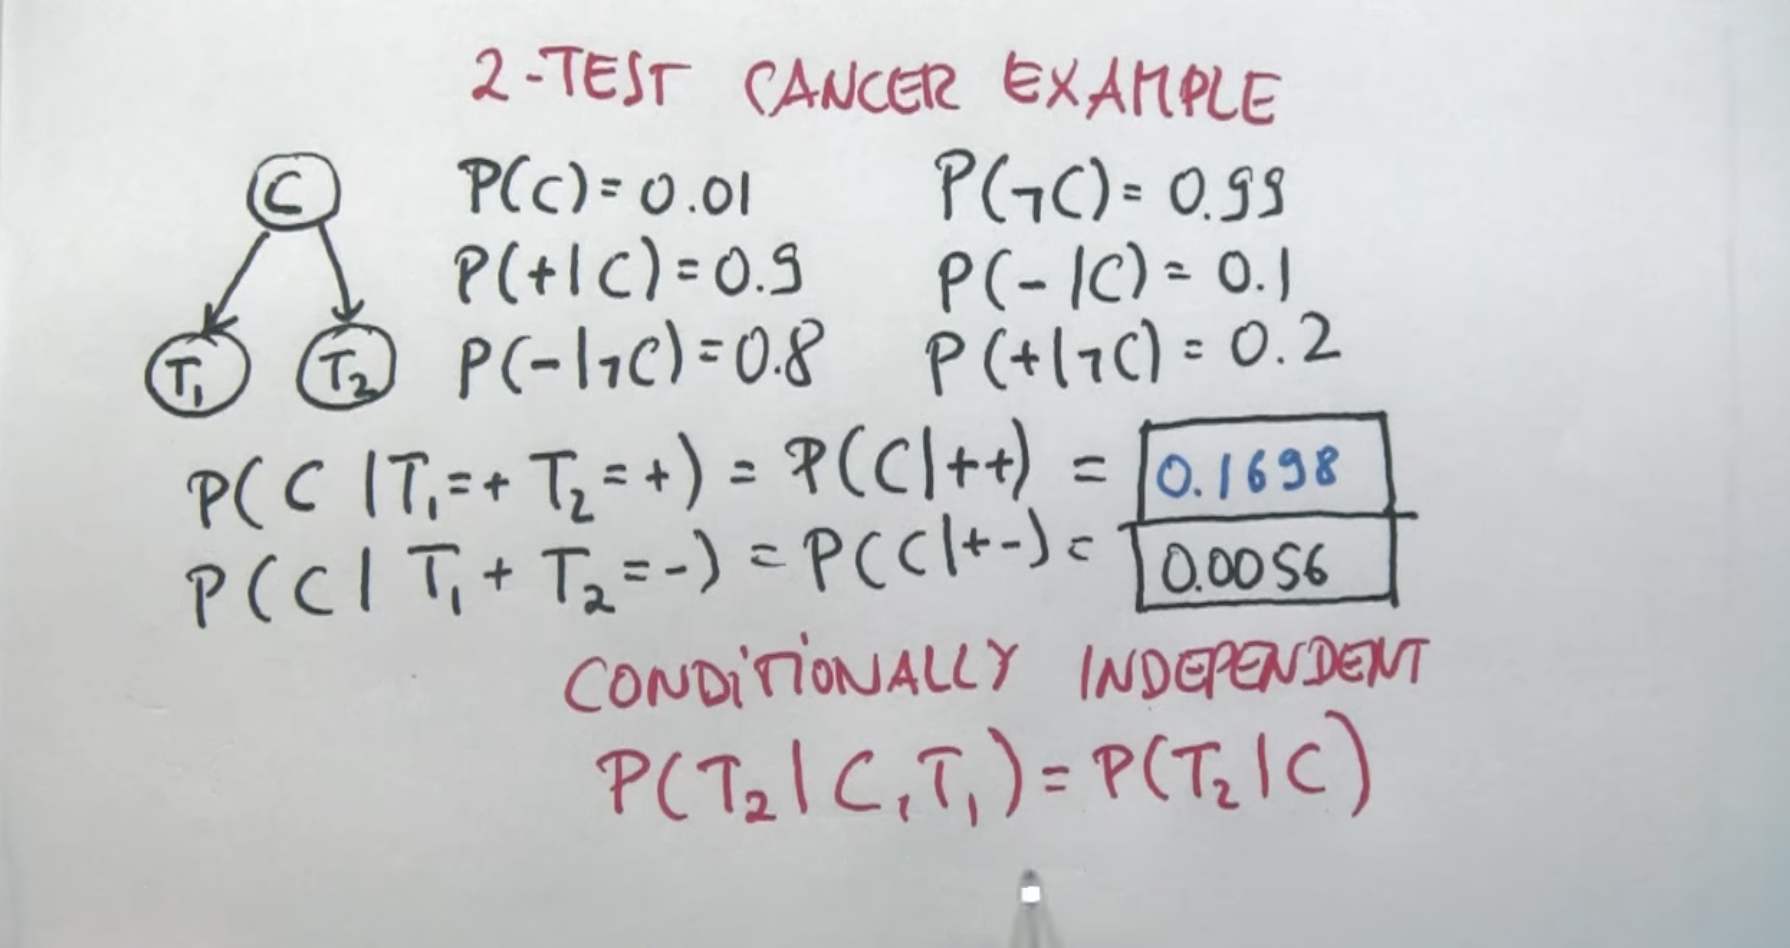 2-TEST CANCER EXAMPLE
C
T₁ T₂
P(C)=0.01 P(¬C)=0.99
P(+|C)=0.9 P(-|C)=0.1
P(-|¬C)=0.8 P(+|¬C)=0.2
P(C|T₁=+ T₂=+) = P(C|++) = 0.1698
P(C|T₁+ T₂=-) = P(C|+-) = 0.0056
CONDITIONALLY INDEPENDENT
P(T₂|C,T₁)=P(T₂|C)